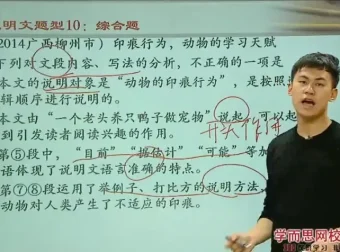 说明文题型10:综合题
2014广西柳州市)印痕行为,动物的学习天赋
下列对文段内容、写法的分析,不正确的一项是
本文的说明对象是“动物的印痕行为”,是按照
辑顺序进行说明的
本文由“一个老头养只鸭子做宠物”说起,可以起
到引发读者阅读兴趣的作用。
开头作用
第⑤段中,“目前”“据估计”“可能”等加
语体现了说明文语言准确的特点。
第⑦⑧段运用了举例子、打比方的说明方法,
动物对人类产生了不适应的印痕。
学而思网校